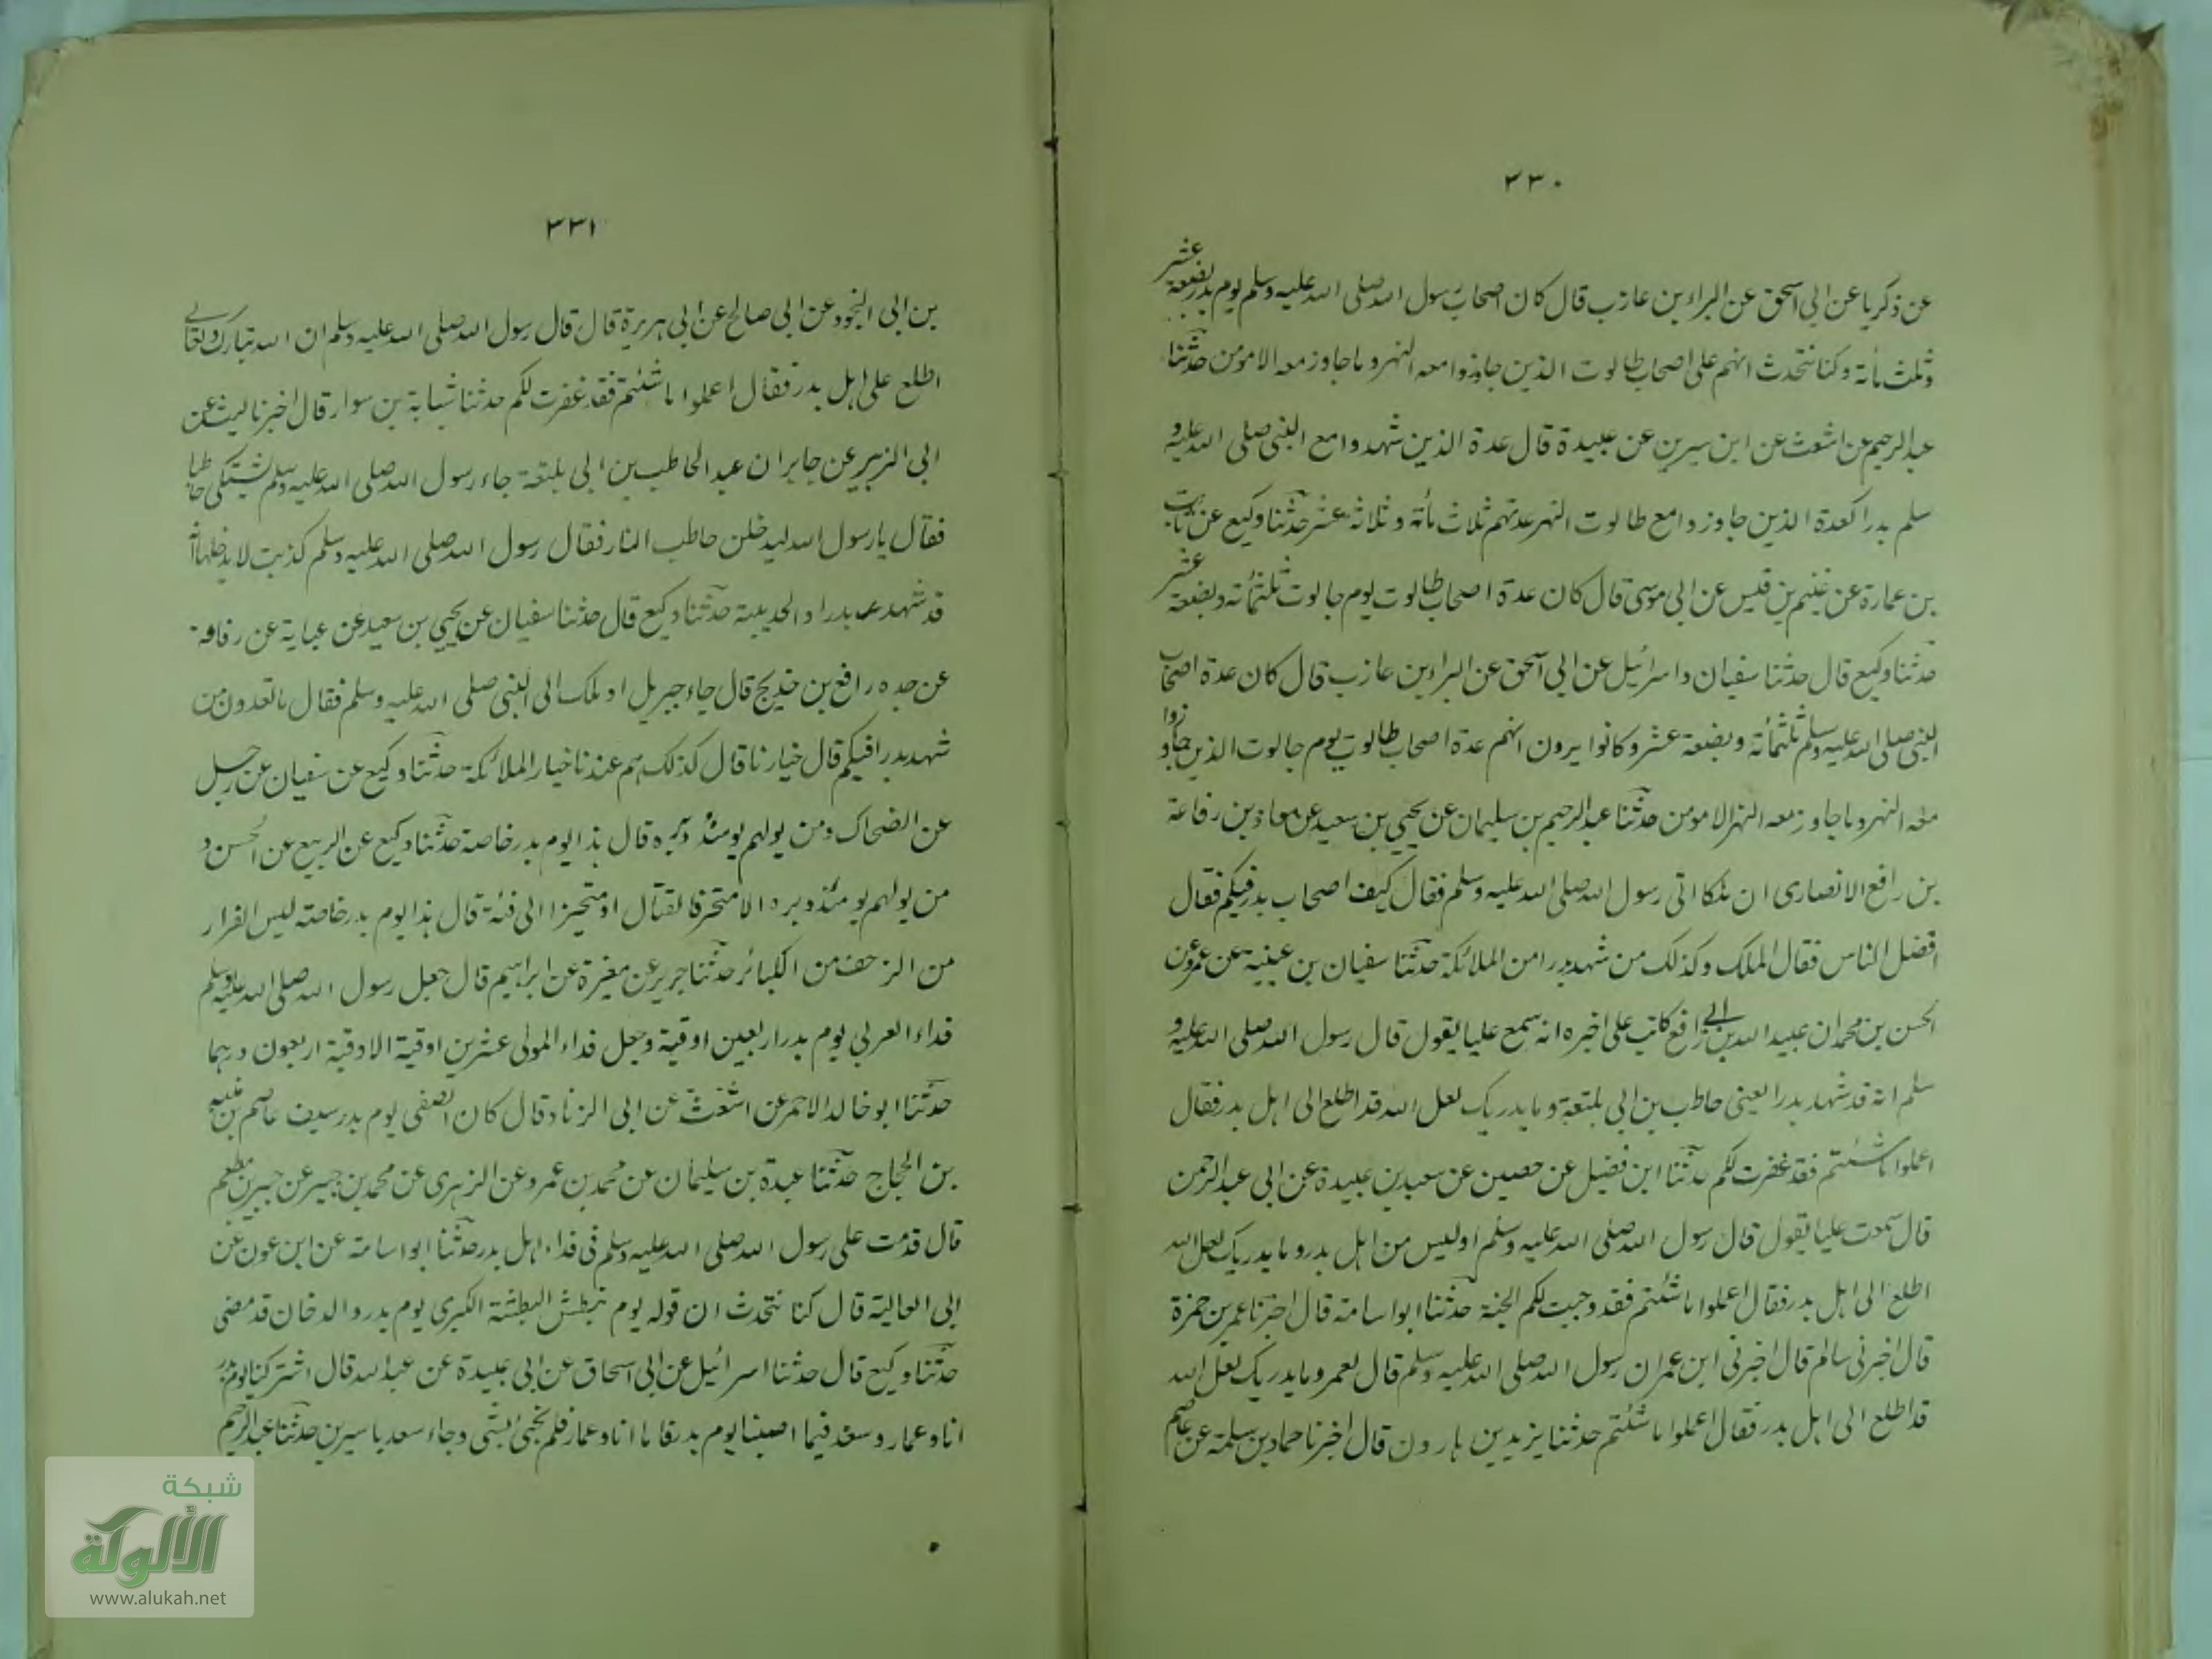 ٣٣٠
عن ذكريا عن ابى اسحق عن البراء بن عازب قال كان اصحاب رسول الله صلى الله عليه وسلم يوم بدر بضعة عشر
وثلث مأته وكنا نتحدث انهم على اصحاب طالوت الذين جاوزوا معه النهر وما جاوز معه الا مومن حدثنا
عبد الرحيم عن اشعث عن ابن سيرين عن عبيدة قال عدة الذين شهدوا مع النبى صلى الله عليه و
سلم بدرا كعدة الذين جاوزوا مع طالوت النهر عدتهم ثلاث مأته وثلاثة عشر حدثنا وكيع عن ثابت
بن عمارة عن غنيم بن قيس عن ابى موسى قال كان عدة اصحاب طالوت يوم جالوت ثلثمأته وبضعة عشر
حدثنا وكيع قال حدثنا سفيان واسرائيل عن ابى اسحق عن البراء بن عازب قال كان عدة اصحاب
النبى صلى الله عليه وسلم ثلثمأته وبضعة عشر وكانوا يرون انهم عدة اصحاب طالوت يوم جالوت الذين جاوزوا
معه النهر وما جاوز معه النهر الا مومن حدثنا عبد الرحيم بن سليمان عن يحيي بن سعيد عن معاذ بن رفاعة
بن رافع الانصارى ان ملكا اتى رسول الله صلى الله عليه وسلم فقال كيف اصحاب بدر فيكم فقال
افضل الناس فقال الملك وكذلك من شهد بدرا من الملائكة حدثنا سفيان بن عيينة عن عمرو عن
الحسن بن محمد ان عبيد الله بن ابى رافع كاتب على اخبره انه سمع عليا يقول قال رسول الله صلى الله عليه و
سلم انه قد شهد بدرا يعنى حاطب بن ابى بلتعة وما يدريك لعل الله قد اطلع الى اهل بدر فقال
اعملوا ما شئتم فقد غفرت لكم حدثنا ابن فضيل عن حصين عن سعد بن عبيدة عن ابى عبد الرحمن
قال سمعت عليا يقول قال رسول الله صلى الله عليه وسلم اوليس من اهل بدر وما يدريك لعل الله
اطلع الى اهل بدر فقال اعملوا ما شئتم فقد وجبت لكم الجنة حدثنا ابو اسامة قال اخبرنا عمر بن حمزة
قال اخبرنى سالم قال اخبرنى ابن عمر ان رسول الله صلى الله عليه وسلم قال لعمر وما يدريك لعل الله
قد اطلع الى اهل بدر فقال اعملوا ما شئتم حدثنا يزيد بن هارون قال اخبرنا حماد بن سلمة عن عاصم
٣٣١
بن ابى النجود عن ابى صالح عن ابى هريرة قال قال رسول الله صلى الله عليه وسلم ان الله تبارك وتعالى
اطلع على اهل بدر فقال اعملوا ما شئتم فقد غفرت لكم حدثنا شبابة بن سوار قال اخبرنا ليث عن
ابى الزبير عن جابر ان عبد الحاطب بن ابى بلتعة جاء رسول الله صلى الله عليه وسلم ليشتكى حاطبا
فقال يا رسول الله ليدخلن حاطب النار فقال رسول الله صلى الله عليه وسلم كذبت لا يدخلها انه
قد شهد بدرا والحديبية حدثنا وكيع قال حدثنا سفيان عن يحيي بن سعيد عن عباية عن رفاعة
عن جده رافع بن خديج قال جاء جبريل او ملك الى النبى صلى الله عليه وسلم فقال ما تعدون من
شهد بدرا فيكم قال خيارنا قال كذلك هم عندنا خيار الملائكة حدثنا وكيع عن سفيان عن رجل
عن الضحاك ومن يولهم يومئذ دبره قال هذا يوم بدر خاصة حدثنا وكيع عن الربيع عن الحسن و
من يولهم يومئذ دبره الا متحرفا لقتال او متحيزا الى فئة قال هذا يوم بدر خاصة ليس الفرار
من الزحف من الكبائر حدثنا جرير عن مغيرة عن ابراهيم قال جعل رسول الله صلى الله عليه وسلم
فداء العربى يوم بدر اربعين اوقية وجعل فداء المولى عشرين اوقية الاوقية اربعون درهما
حدثنا ابو خالد الاحمر عن اشعث عن ابى الزناد قال كان الصفى يوم بدر سيف عاصم بن منبه
بن الحجاج حدثنا عبدة بن سليمان عن محمد بن عمرو عن الزهرى عن محمد بن جبير عن جبير بن مطعم
قال قدمت على رسول الله صلى الله عليه وسلم فى فداء اهل بدر حدثنا ابو اسامة عن ابن عون عن
ابى العالية قال كنا نتحدث ان قوله يوم نبطش البطشة الكبرى يوم بدر والدخان قد مضى
حدثنا وكيع قال حدثنا اسرائيل عن ابى اسحاق عن ابى عبيدة عن عبد الله قال اشتركنا يوم بدر
انا وعمار وسعد فيما اصبنا يوم بدر فاما انا وعمار فلم نجئ بشى وجاء سعد باسيرين حدثنا عبد الرحيم
شبكة
الألوكة
www.alukah.net